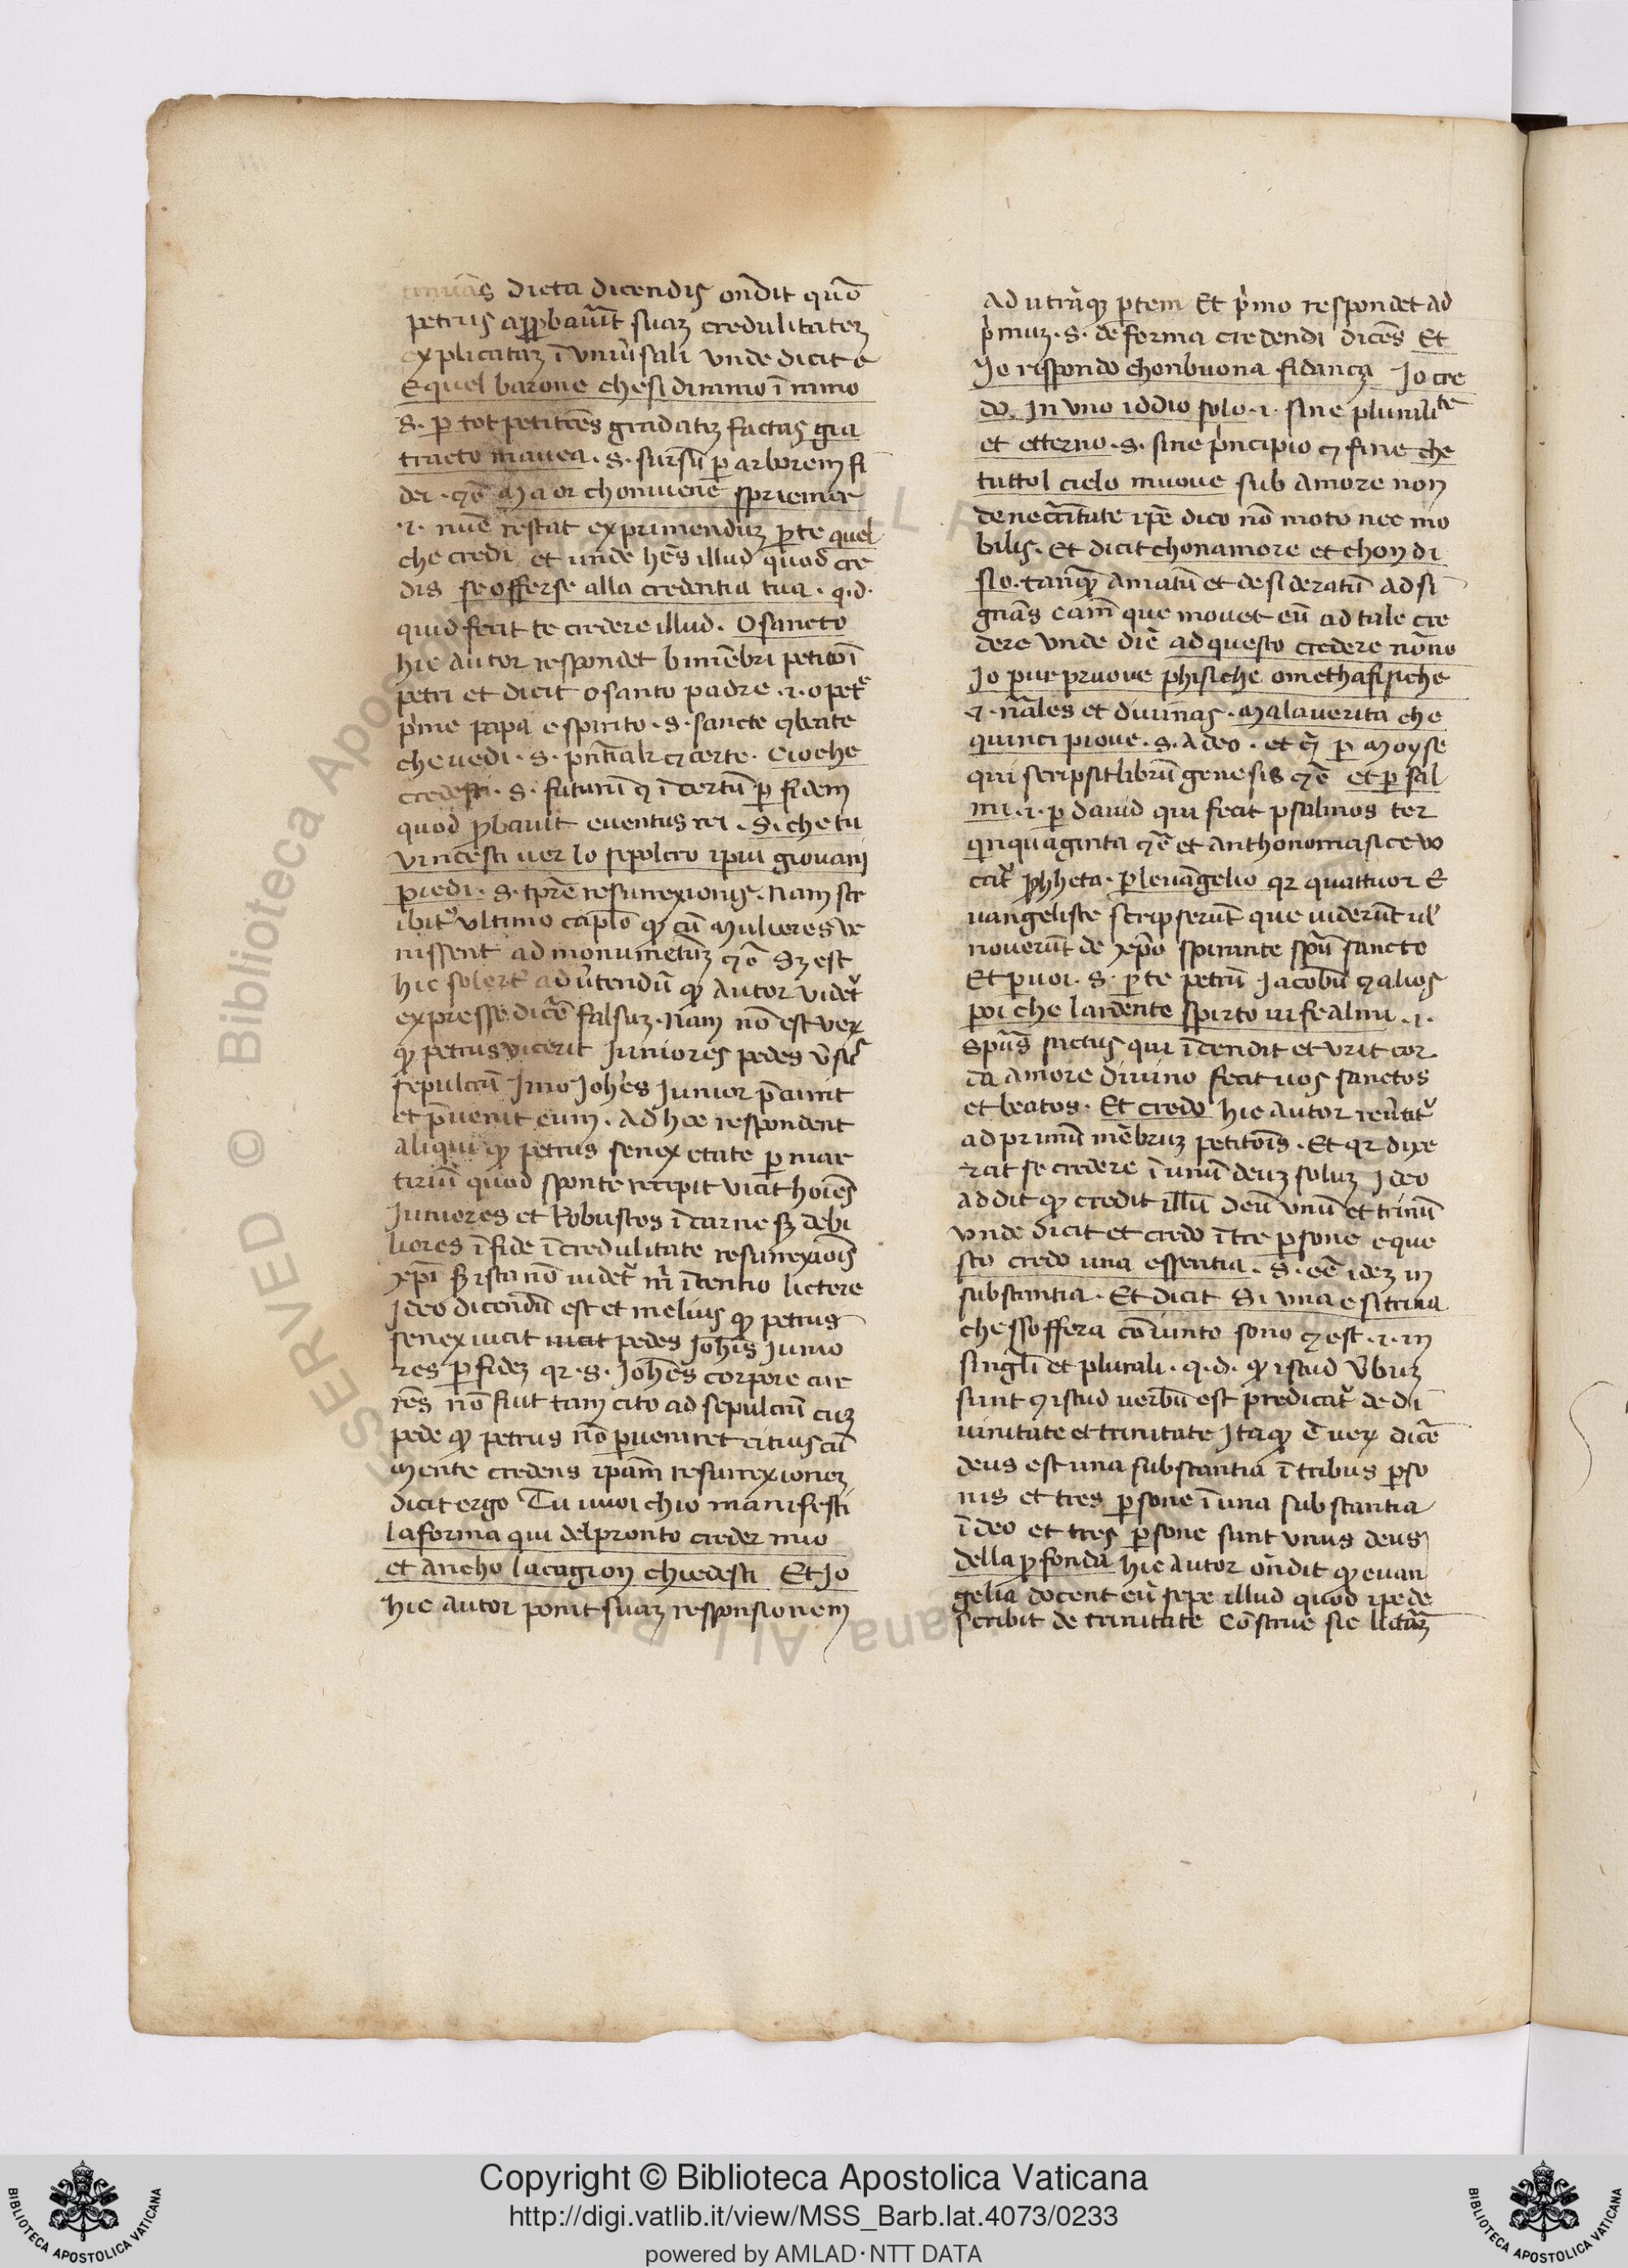 tinuās dicta dicendis ondit quō
petrus approbauīt suaȝ credulitateȝ
explicataȝ ī vniūsali vnde dicit e
Equel barone che si diramo ī ramo
s. ꝑ tot petitōes gradatiȝ factas gia
tracto mauea . s . sursū ꝑ arborem fi
dei . ⁊ē Ma or chonuiene spriemie
.i. nūc restat exprimenduȝ ꝑ te quel
che credi et unde hēs illud quod cre
dis se offerse alla credentia tua . q.d.
quid fecit te credere illud . O sancto
hic autor respondet bimēbri petitōī
petri et dicit o santo padre .i. o petre
ṗme papa e spirito . s . sancte ⁊ beate
che uedi . s . pn̄tialr ⁊ certe . Cioche
credesti . s . futurū ⁊ īcertū ꝑ fidem
quod ꝓbauit euentus rei . Si che tu
vincesti uer lo sepolcro ipiu giouani
piedi . s . tp̄re resurrexionis . Nam scr
ibit᷑ vltimo capl̄o ꝙ cū mulieres ve
nissent ad monumētuȝ ⁊c̄ Sȝ est
hic solert᷑ aduertendū ꝙ autor videt᷑
expresse dicē falsuȝ . Nam nō est veꝝ
ꝙ petrus vicerit Juniores pedes v̄sus
sepulcrū Imo Joh̄es Junior p̄cucurrit
et p̄uenit eum . Ad hoc respondent
aliqui ꝙ petrus senex etate ꝑ mar
tiriū quod sponte recepit vicit hoīes
Juniores et Robustos ī carne sȝ debi
liores ī fide ī credulitate resurrexiōis
xp̄i Sȝ ista nō uidet᷑ m̄ ītentio lictere
Ideo dicendū est et melius ꝙ petrus
senex uicit uicit pedes Joh̄is Junio
res ꝑ fideȝ qr . s . Joh̄es corpore cur
rēs nō fuit tam cito ad sepulcrū cuȝ
pede ꝙ petrus nō ꝑueniret citius cū
mente credens ipam̄ resurrexioneȝ
dicit ergo Tu uuoi chio manifesti
la forma qui del pronto creder mio
et ancho la cagion chiedesti Et Jo
hic autor ponit suaȝ responsionem
Ad utrāqȝ ꝑtem Et ṗmo respondet ad
ṗmuȝ . s . de forma credendi dicēs Et
Jo rispondo chon buona fidanza Jo cre
do In vno iddio solo .i. sine pluralitate
et etterno . s . sine ṗncipio ⁊ fine che
tuttol cielo muoue sub amore non
de necessitate ipē dico nō moto nec mo
bilis . Et dicit chon amore et chon di
sio . tanqȝ amatū et desideratū adsi
gnās cām̄ que mouet eū ad tale cre
dere vnde dic̄ ad questo credere nōno
Jo pur pruoue phisiche omethafisiche
.i. nāles et diuinas . ma la uerita che
quinci pioue . s. A deo . et c̄ ꝑ Moyse
qui scripsit librū genesis ⁊c̄ et ꝑ sal
mi .i. ꝑ dauid qui fecit psalmos ter
qnquaginta ⁊c̄ et anthonomasice vo
cat᷑ ꝓpheta . ꝑ leuāgelio qr quattuor E
uangeliste scripserūt que uiderūt ul᷑
nouerūt de xp̄o spirante spū sancto
Et ꝑ uoi . s . ꝑ te petrū Jacobū ⁊ alios
poi che lardente spirto ui fe almi .i.
Spūs sactus qui ītendit et vrit cor
da amore diuino fecit uos sanctos
et beatos . Et credo hic autor reūtit᷑
ad primū mēbruȝ petitōis . Et qr dixe
rat se credere ī unū deuȝ soluȝ Ideo
addit ꝙ credit illū deū vnū et trinū
vnde dicit et credo ī tre ꝑsone e que
sto credo una essentia . s . eē ideȝ in
substantia . Et dicit Si una e si trina
che ssoffera cōiunto sono ⁊ est .i. in
singl̄i et plurali . q . d . ꝙ istud v̄buȝ
sunt ⁊ istud uerbū est predicat᷑ de di
uinitate et trinitate Ita ꝙ ē ueꝝ dicē
deus est una substantia ī tribus ꝑso
nis et tres ꝑsone ī una substantia
ī deo et tres ꝑsone sunt vnus deus
della ꝓfonda hic autor ōndit ꝙ euan
gelia docent eū sepe illud quod ipe de
scribit de trinitate Cōstrue sic licterā
Copyright © Biblioteca Apostolica Vaticana
http://digi.vatlib.it/view/MSS_Barb.lat.4073/0233
powered by AMLAD·NTT DATA